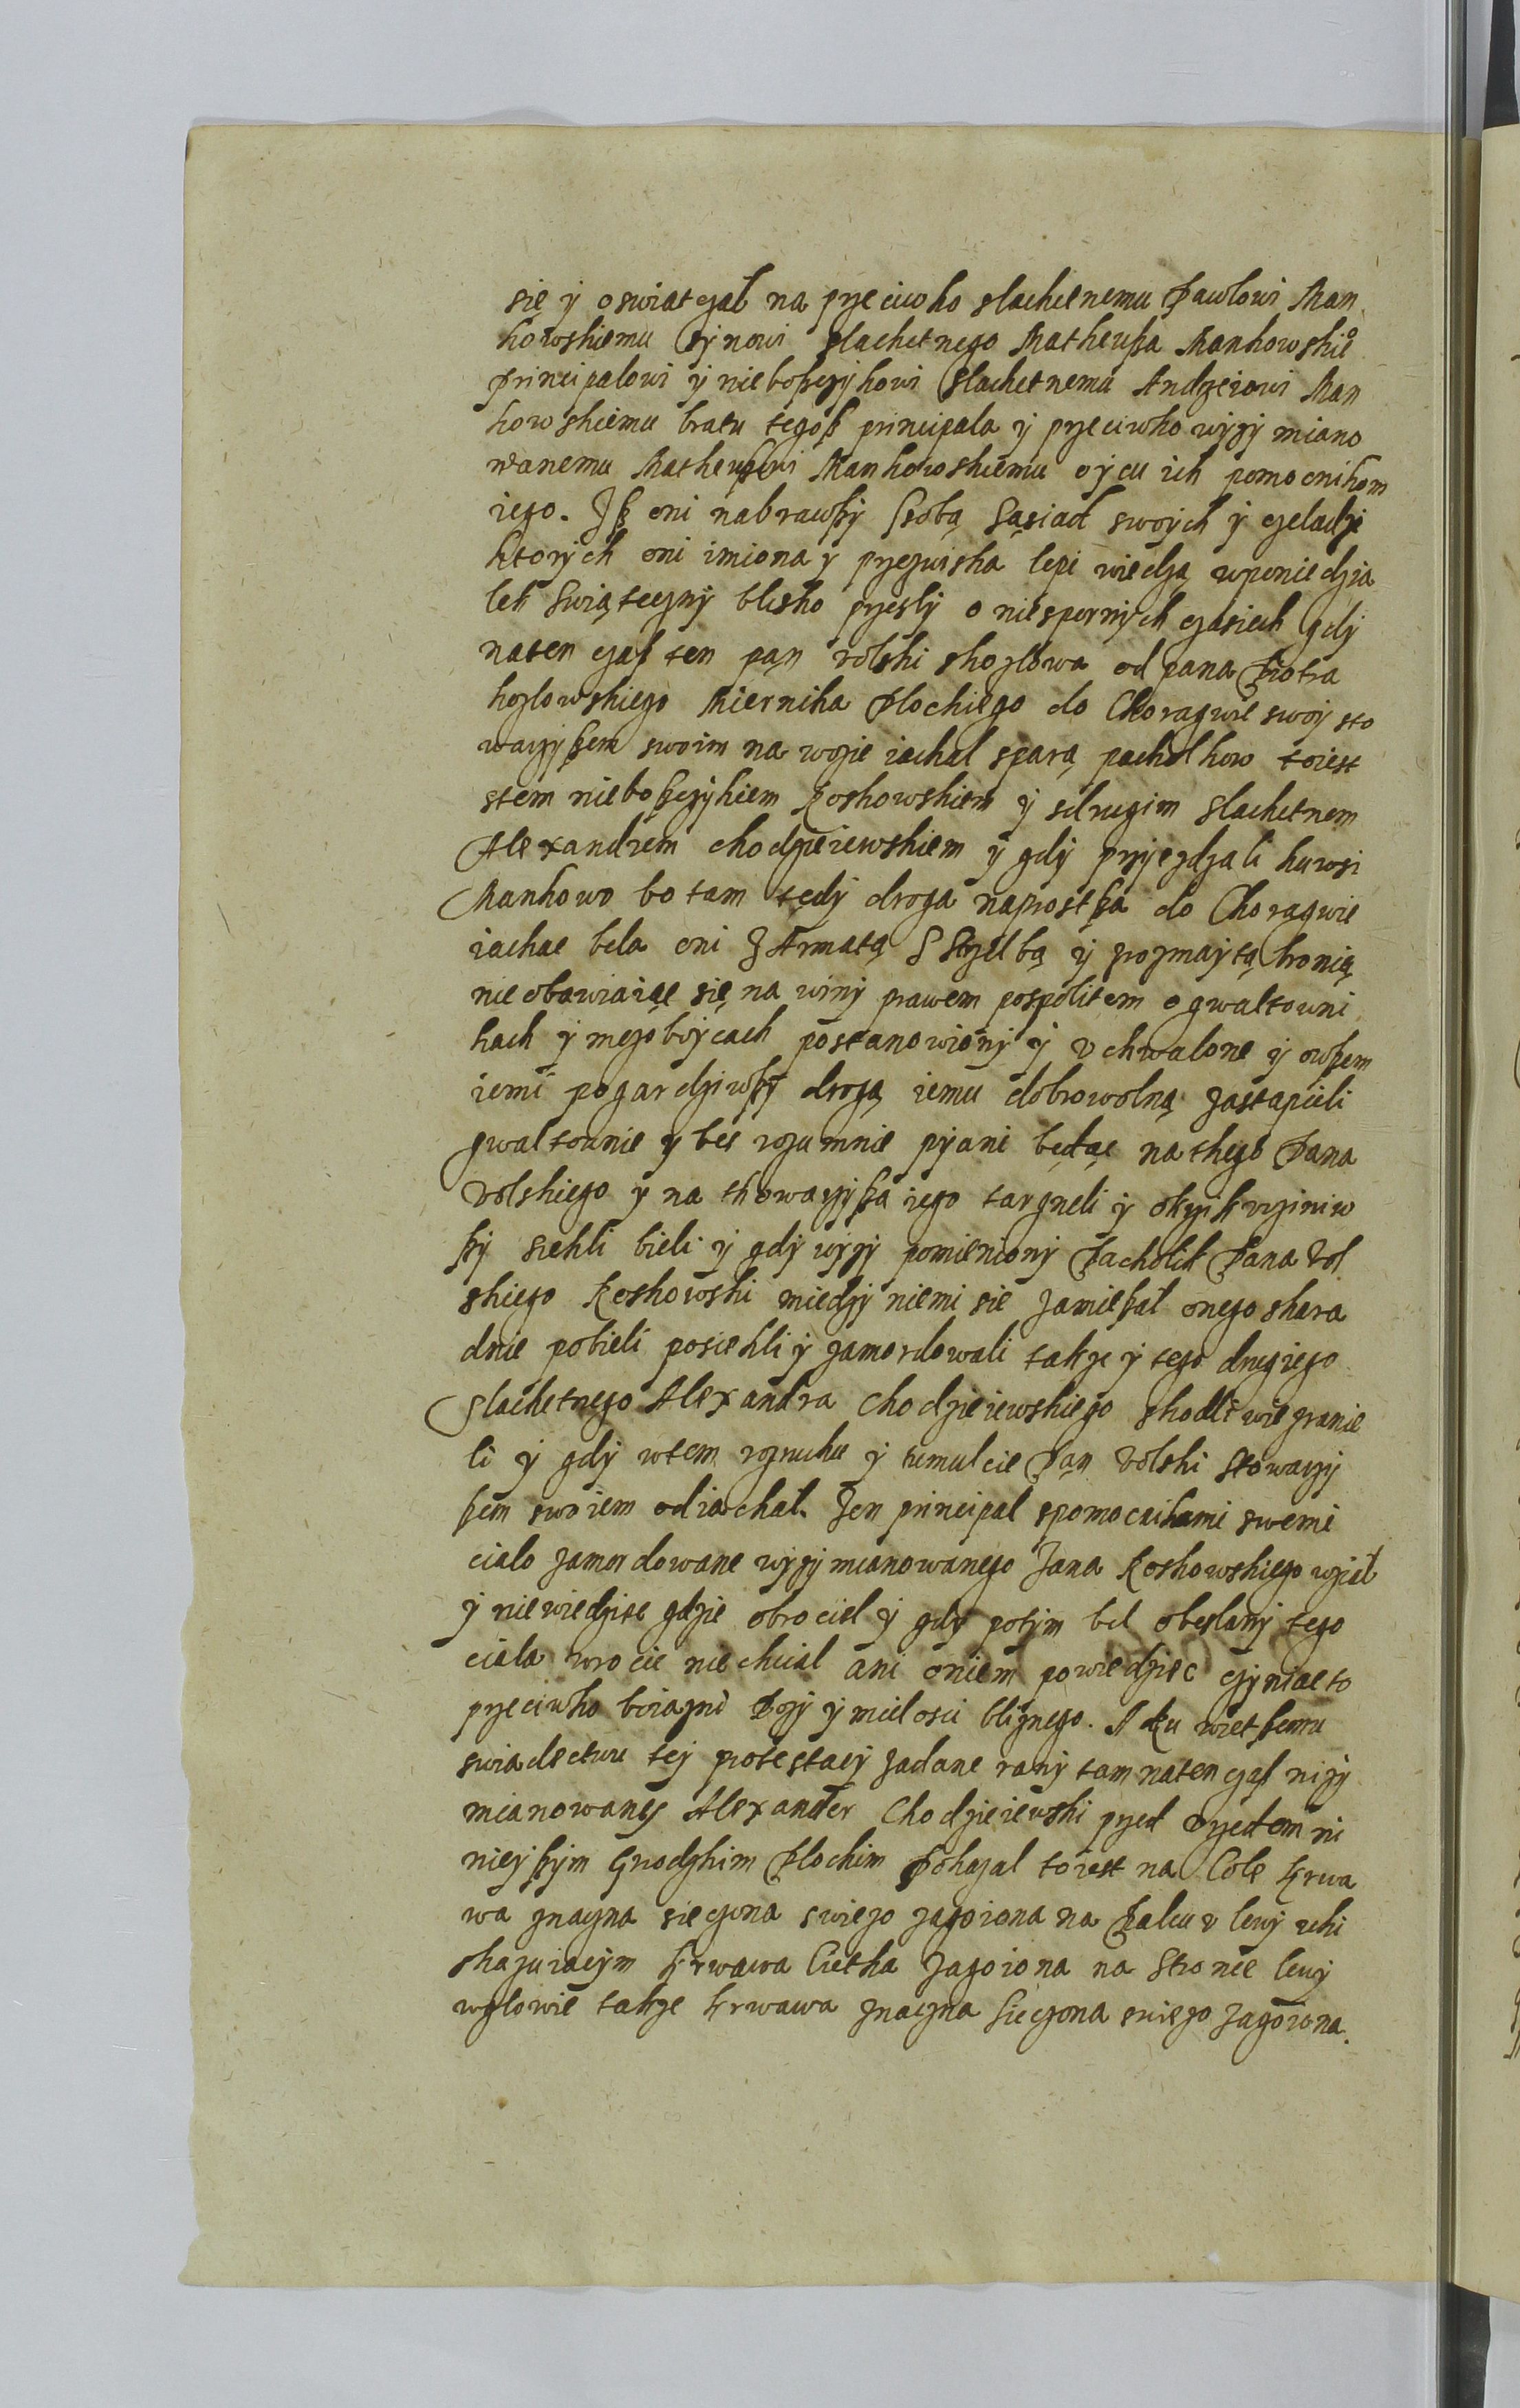 się ÿ oswiatczał na przeciwko slachetnemu Pawłowi Man
kowskiemu synowi slachetnego Matheußa Mankowskie°
Principalowi ÿ nieboßczÿkowi Slachetnemu Andrzeiowi Man
kowskiemu bratu tegoß principala ÿ przeciwko wÿzÿ miano
wanemu Matheußowi Mankowskiemu oÿcu ich pomocnikom
iego. Iß oni nabrawßÿ ssobą sąsiad swoÿch ÿ czeladzi
ktorÿch oni imiona ÿ przezwiska lepi wiedzą wponiedzia
lek swiąteczny blisko przeslÿ o niespornÿch czasiech gdÿ
naten czaß ten pąn volski skozlowa od pana Piotra
kozlowskiego Miernika Plockiego do Choragwie swoÿ sto
warzÿßem swoim na wozie iachal sparą pacholkow toiest
stem nieboßczÿkiem Koskowskiem ÿ sdrugim slachetnem
Alexandrem chodzieiewskiem ÿ gdÿ przÿezdzali kuwsi
Mankowo bo tam tędÿ droga naprostßa do Choragwie
iachac bela oni z Armatą s Strzelbą ÿ zrozmaÿtą bronią
nieobawiaiąc się na winÿ prawem pospolitem o gwaltowni
kach ÿ mezoboÿcach postanowionÿ ÿ vchwalone ÿ owßem
iemi pogardziwßÿ drogą iemu dobrowolną zastąpieli
gwaltownie ÿ bes rozumnie pÿani będąc nathego Pana
Volskiego ÿ na thowarzÿßa iego targneli ÿ okrzik vcziniw
ßÿ siekli bieli ÿ gdÿ wÿzÿ pomienionÿ Pacholik Pana Vol
skiego Koskowski miedzÿ niemi sie zamießał onego skara
dnie pobieli posiekli ÿ zamordowali takze ÿ tego drugiego
Slachetnego Alexandra Chodzieiewskiego skodliwie zranie
li ÿ gdÿ wtem rozruchu ÿ tumulcie Pąn Volski stowarzÿ
ßem swoiem odiachał. Ten principal spomocnikami swemi
cialo zamordowane wÿzÿ mianowanego Jana Koskowskiego wział
ÿ niewiedziec gdzie obrociel ÿ gdÿ potÿm bel obeslanÿ tego
ciala wrocic nie chcial ani oniem powiedziec czÿniac to
przeciwko boiazni Bozÿ ÿ mielosci bliznego. A ku wietßemu
swiadectwu teÿ protestaciÿ zadane ranÿ tam naten czaß nizÿ
mianowanÿ Alexander Chodzieiewski przed vrzedem ni
nieÿßÿm Grodzkim Plockim Pokazal toiest na Cole krwa
wa znaczna sieczona swiezo zagoiona na Palcu v lewÿ reki
skazuiacÿm krwawa Cietha zagoiona na stronie lewÿ
wglowie takze krwawa znaczna sieczona swiezo zagoiona.